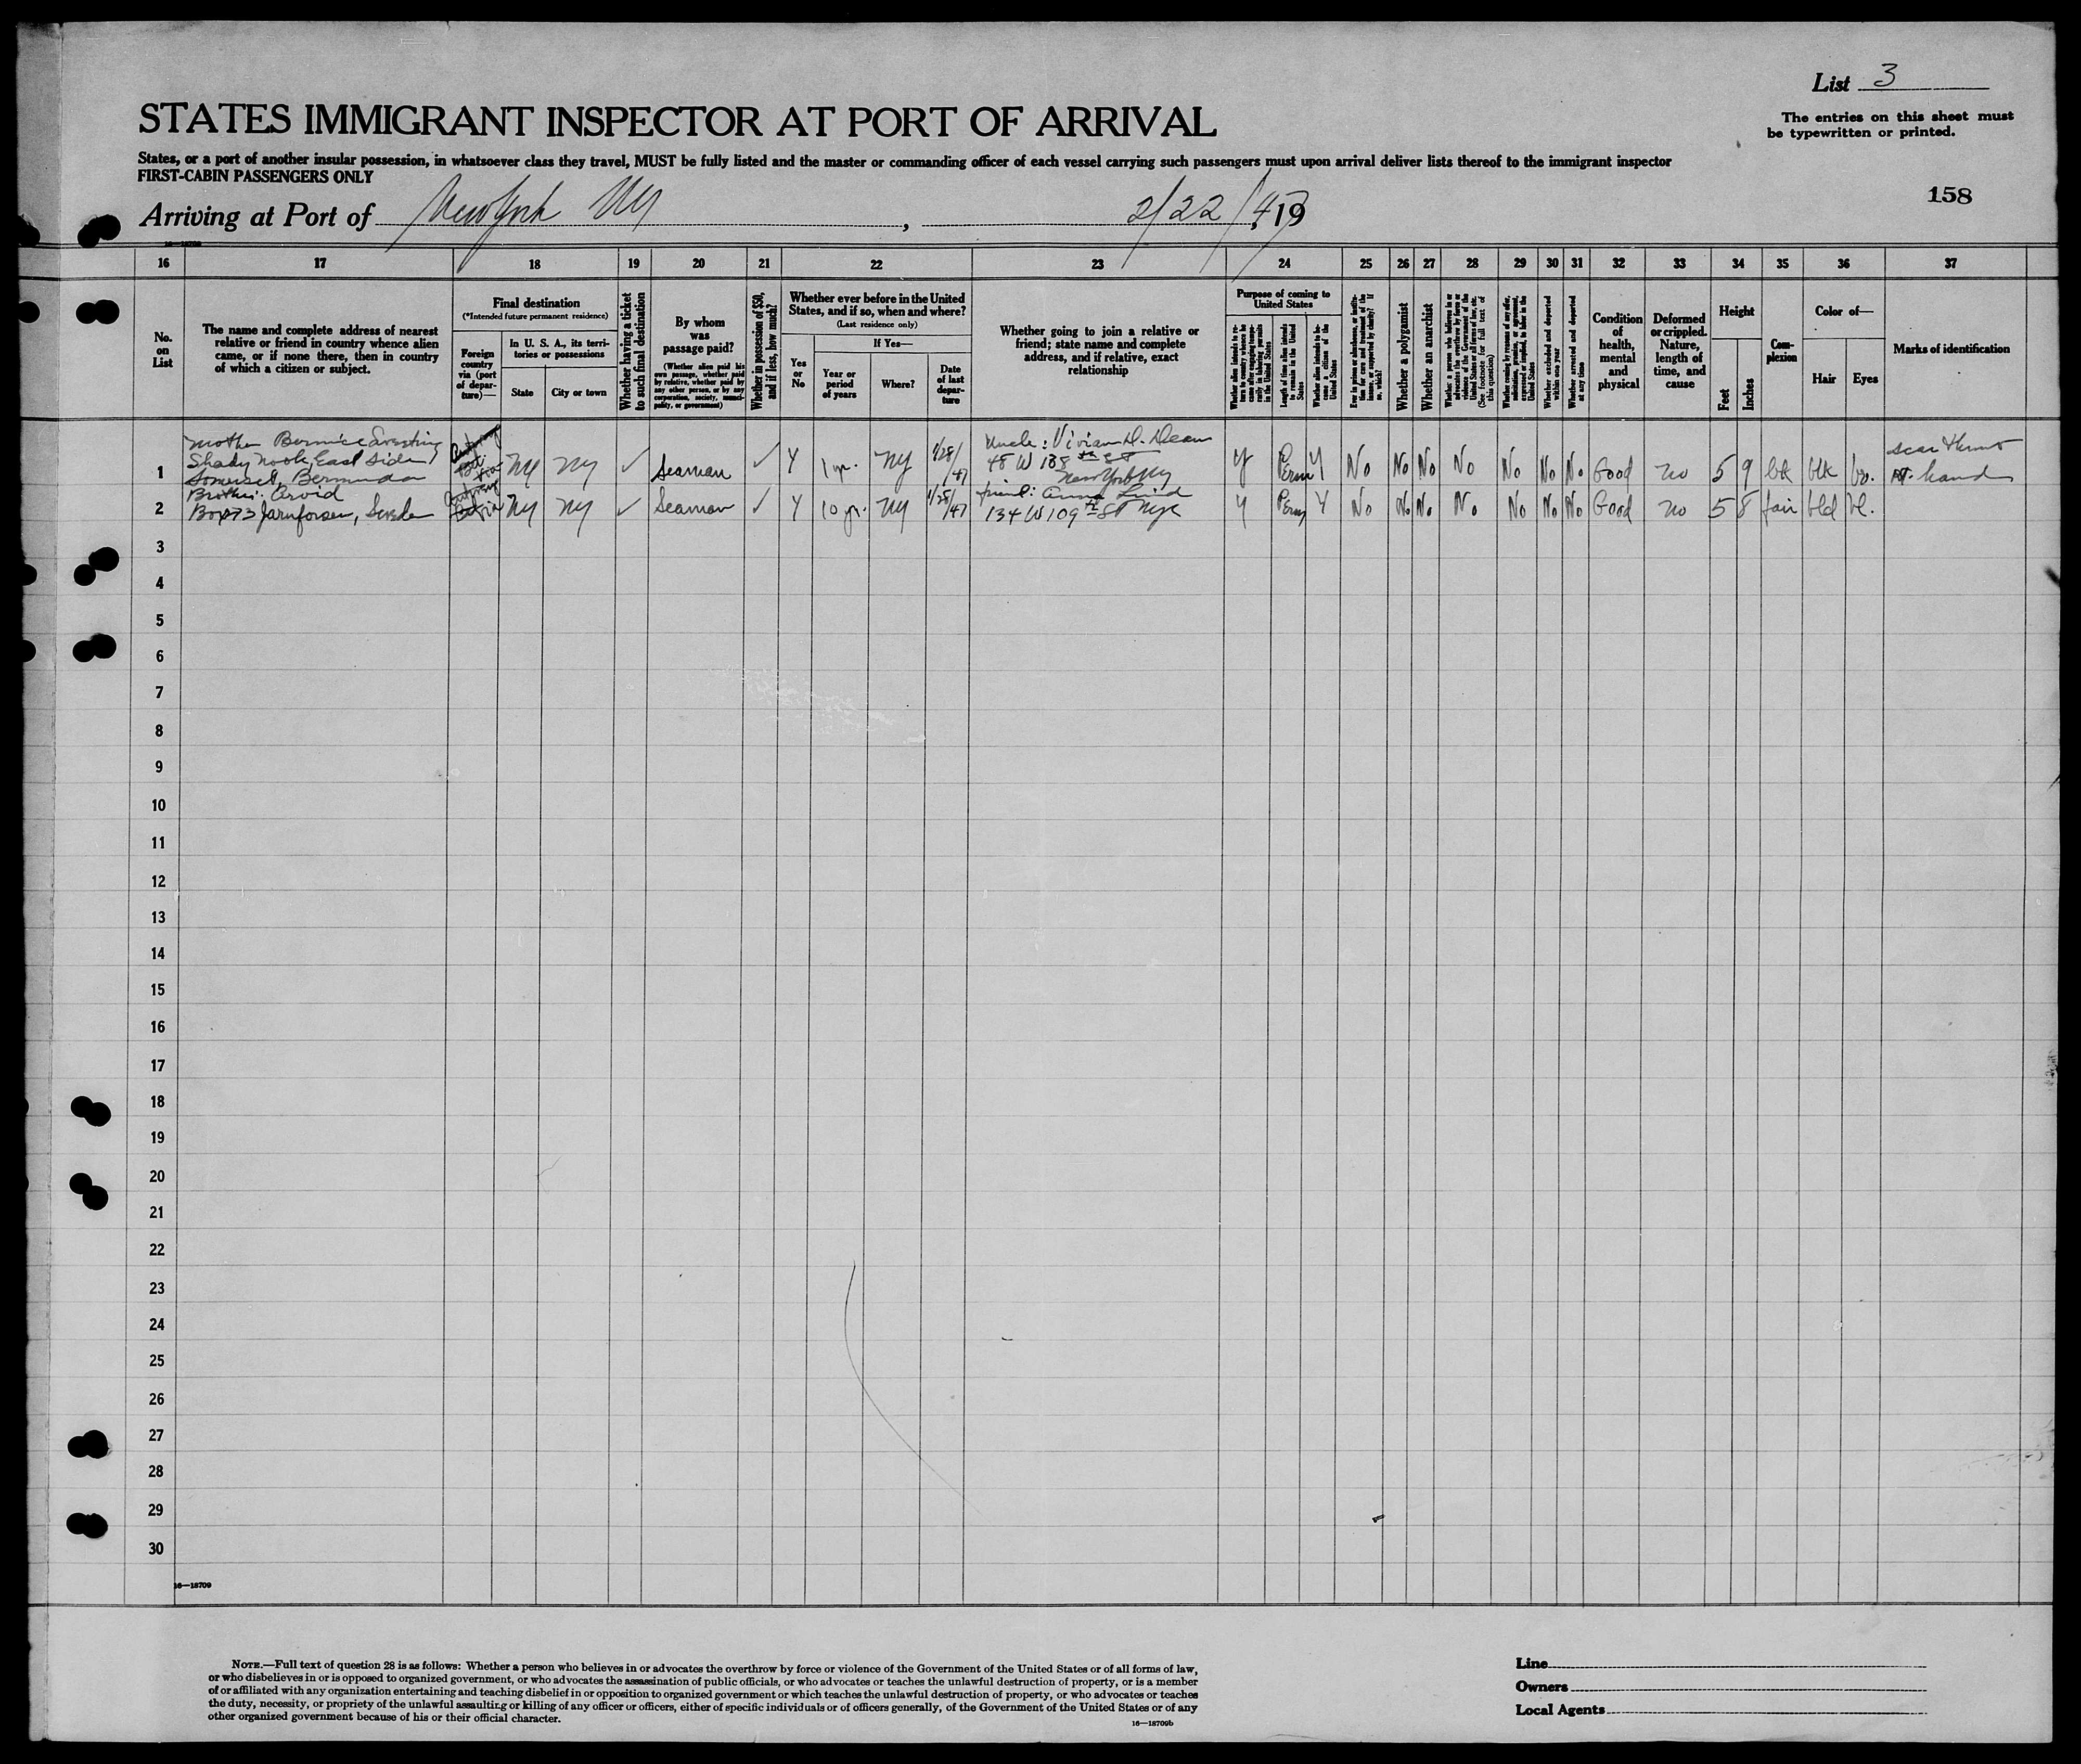 List 3
The entries on this sheet must
be typewritten or printed.
STATES IMMIGRANT INSPECTOR AT PORT OF ARRIVAL
States, or a port of another insular possession, in whatsoever class they travel, MUST be fully listed and the master or commanding officer of each vessel carrying such passengers must upon arrival deliver lists thereof to the immigrant inspector
FIRST-CABIN PASSENGERS ONLY
158
Arriving at Port of New York NY, 2/22/47, 19
16 17 18 19 20 21 22 23 24 25 26 27 28 29 30 31 32 33 34 35 36 37
No.
on
List
The name and complete address of nearest
relative or friend in country whence alien
came, or if none there, then in country
of which a citizen or subject.
Final destination
(*Intended future permanent residence)
Foreign
country
via (port
of depar-
ture)—
In U. S. A., its terri-
tories or possessions
State
City or town
Whether having a ticket
to such final destination
By whom
was
passage paid?
(Whether alien paid his
own passage, whether paid
by relative, whether paid by
any other person, or by any
corporation, society, munici-
pality, or government)
Whether in possession of $50,
and if less, how much?
Whether ever before in the United
States, and if so, when and where?
(Last residence only)
Yes
or
No
If Yes—
Year or
period
of years
Where?
Date
of last
depar-
ture
Whether going to join a relative or
friend; state name and complete
address, and if relative, exact
relationship
Purpose of coming to
United States
Length of time alien intends
to remain in the United
States
Whether alien intends to be-
come a citizen of the
United States
Whether a polygamist
Whether an anarchist
(See footnote for full text of
this question)
Whether excluded and deported
within one year
Whether arrested and deported
at any time
Condition
of
health,
mental
and
physical
Deformed
or crippled.
Nature,
length of
time, and
cause
Height
Feet
Inches
Com-
plexion
Color of—
Hair
Eyes
Marks of identification
Mother Bernice
Shady Nook, East Side
1 Somerset, Bermuda NY NY ✓ Seaman ✓ Y 1 yr. NY 1/28/47 Uncle: Vivian D. Dean
48 W 138th St
New York NY
Y Perm Y No No No No No No No Good no 5 9 blk blk br. scar
hand
Brother: Arvid
2 Box 73 Jarnforsen, Sweden NY NY ✓ Seaman ✓ Y 10 yr. NY 1/28/47 friend: Anna
134 W 109th St NYC
Y Perm Y No No No No No No No Good no 5 8 fair bld bl.
3
4
5
6
7
8
9
10
11
12
13
14
15
16
17
18
19
20
21
22
23
24
25
26
27
28
29
30
16—18709
NOTE.—Full text of question 28 is as follows: Whether a person who believes in or advocates the overthrow by force or violence of the Government of the United States or of all forms of law,
or who disbelieves in or is opposed to organized government, or who advocates the assassination of public officials, or who advocates or teaches the unlawful destruction of property, or is a member
of or affiliated with any organization entertaining and teaching disbelief in or opposition to organized government or which teaches the unlawful destruction of property, or who advocates or teaches
the duty, necessity, or propriety of the unlawful assaulting or killing of any officer or officers, either of specific individuals or of officers generally, of the Government of the United States or of any
other organized government because of his or their official character.
16—18709b
Line
Owners
Local Agents